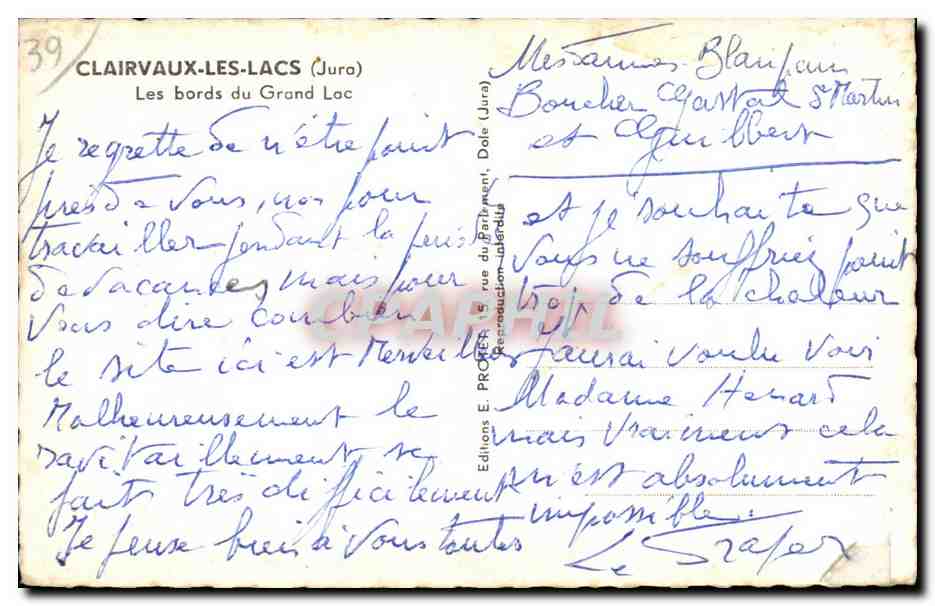 39
CLAIRVAUX-LES-LACS (Jura)
Les bords du Grand Lac
Je regrette de n'être point
près de vous, non pour
travailler pendant la période
de vacances, mais pour
vous dire combien
le site ici est merveilleux
Malheureusement le
ravitaillement se
fait très difficilement
Je pense bien à vous toutes
Editions E. PROTET, 15, rue du Parlement, Dole (Jura)
Reproduction interdite
CPARPHIL
Mesdames
Boucher St Martin
et Guilbert
et je souhaite que
vous ne souffriez point
trop de la chaleur
J'aurai voulu voir
Madame Henard
mais vraiment cela
m'est absolument
impossible.